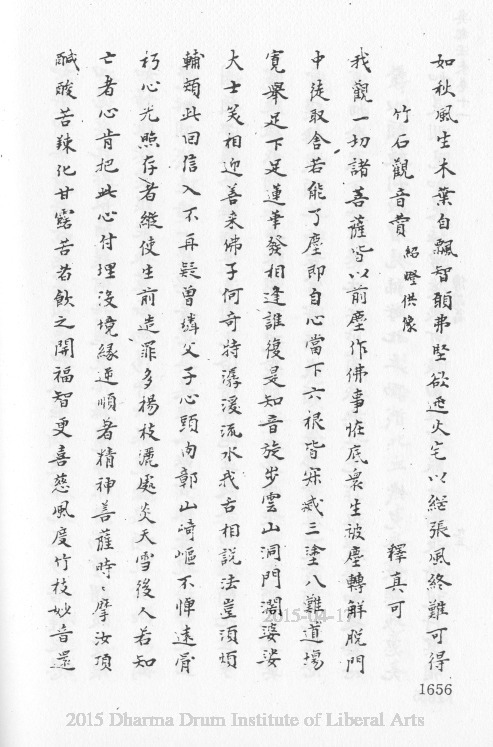 如秋風生木葉自飄智顗弗堅欲逃火宅以綌張風終難可得
竹石觀音贊 紹堅供像 釋真可
我觀一切諸菩薩皆以前塵作佛事惟底衆生被塵轉解脫門
中徒取舍若能了塵即自心當下六根皆寂滅三塗八難道場
寬舉足下足蓮華發相逢誰復是知音旋步雲山洞門濶婆娑
大士笑相迎善来佛子何奇特潺湲流水我舌相說法豈須煩
輔頰此回信入不再疑曽憐父子心頭肉鄣山崎嶇不憚遠骨
朽心光照存者縱使生前造罪多楊枝灑處炎天雪後人若知
亡者心肯把此心付埋沒境緣逆順著精神菩薩時時摩汝項
醎酸苦辣化甘露苦者飲之開福智更喜慈風度竹枝妙音還
1656
2015-04-17
2015 Dharma Drum Institute of Liberal Arts